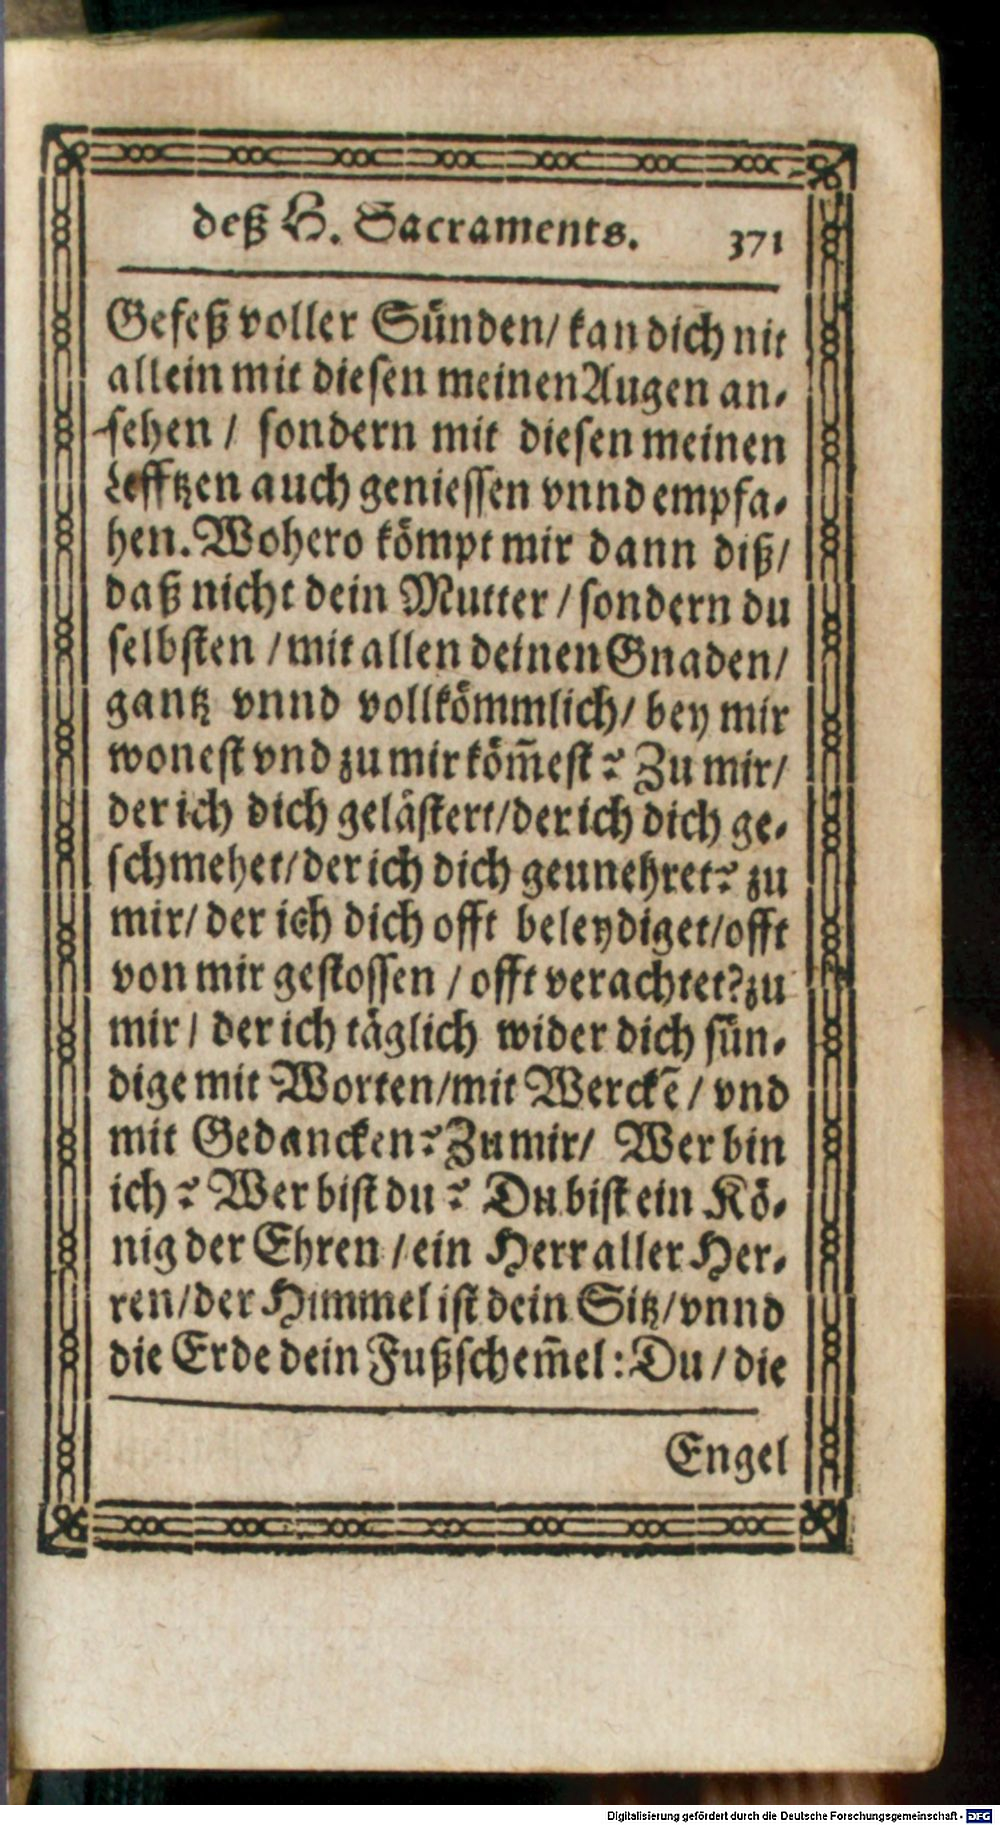 deß H. Sacraments. 371
Gefeß voller Sünden/ kan dich nit
allein mit diesen meinen Augen an-
sehen / sondern mit diesen meinen
Lefftzen auch geniessen vnnd empfa-
hen. Wohero kömpt mir dann diß/
daß nicht dein Mutter / sondern du
selbsten / mit allen deinen Gnaden/
gantz vnnd vollkömmlich/ bey mir
wonest vnd zu mir köm̃est? Zu mir/
der ich dich gelästert/der ich dich ge-
schmehet/der ich dich geunehret? zu
mir/ der ich dich offt beleydiget/offt
von mir gestossen / offt verachtet? zu
mir / der ich täglich wider dich sün-
dige mit Worten/mit Werckẽ / vnd
mit Gedancken? Zu mir/ Wer bin
ich? Wer bist du? Du bist ein Kö-
nig der Ehren / ein Herr aller Her-
ren/der Himmel ist dein Sitz/vnnd
die Erde dein Fußschem̃el: Du / die
Engel
Digitalisierung gefördert durch die Deutsche Forschungsgemeinschaft - DFG